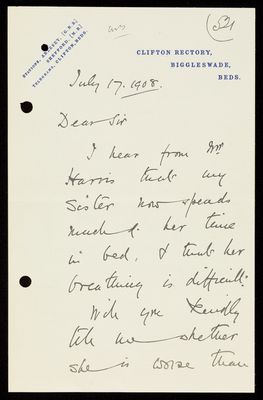 (54)
STATIONS, ARLESEY. [G.N.R.]
SHEFFORD. [M.R.]
TELEGRAMS, CLIFTON, BEDS.
CLIFTON RECTORY,
BIGGLESWADE,
BEDS.
July 17. 1908.
Dear Sir
I hear from Mrs
Harris that my
Sister now spends
much of her time
in bed, & that her
breathing is difficult.
Will you kindly
tell me whether
she is worse than